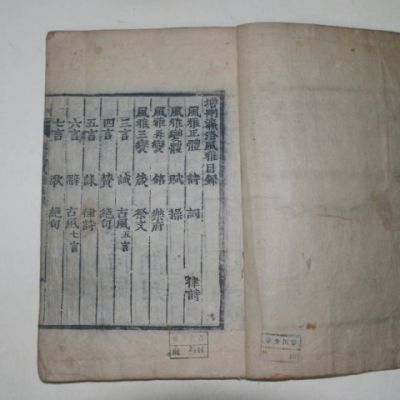 增刪濂洛風雅目錄
風雅正體 詩 詞
律詩
風雅變體 賦 操
風雅再變 銘 樂府
風雅三變 箴 祭文
三言 誡 古風五言
四言 贊 絶句
五言 律詩
六言 辭 古風七言
七言 歌 絶句